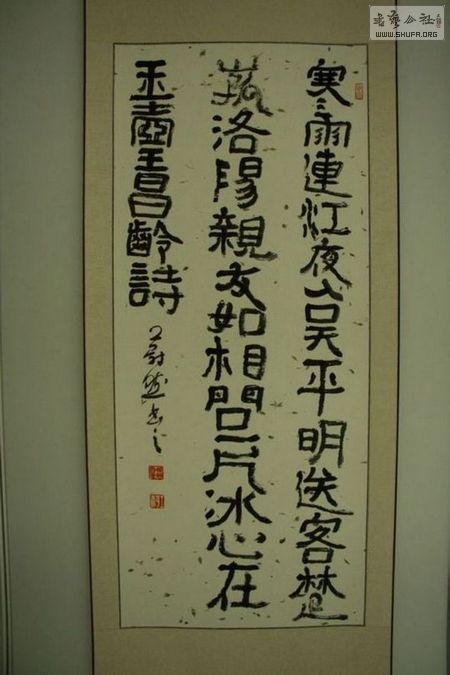 寒雨連江夜入吳平明送客楚
山孤洛陽親友如相問一片冰心在
玉壺王昌齡詩
蔚然書之
書藝公社
WWW.SHUFA.ORG